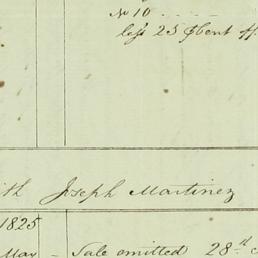 No 10 . . . . .
less 25 ⅌ Cent off
ith Joseph Martinez
1825
May - Sale omitted 28th